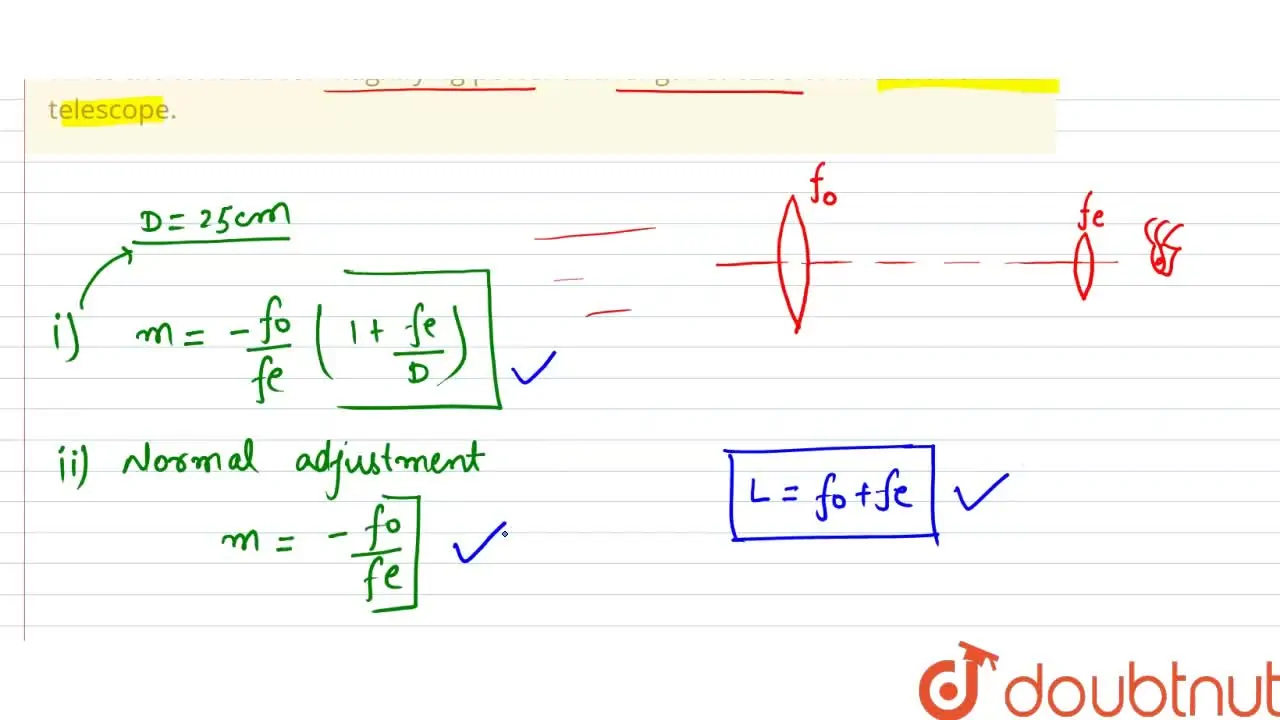 telescope.
fo
fe
D = 25cm
i) m = -fo/fe (1 + fe/D)
ii) Normal adjustment
L = fo + fe
m = -fo/fe
doubtnut